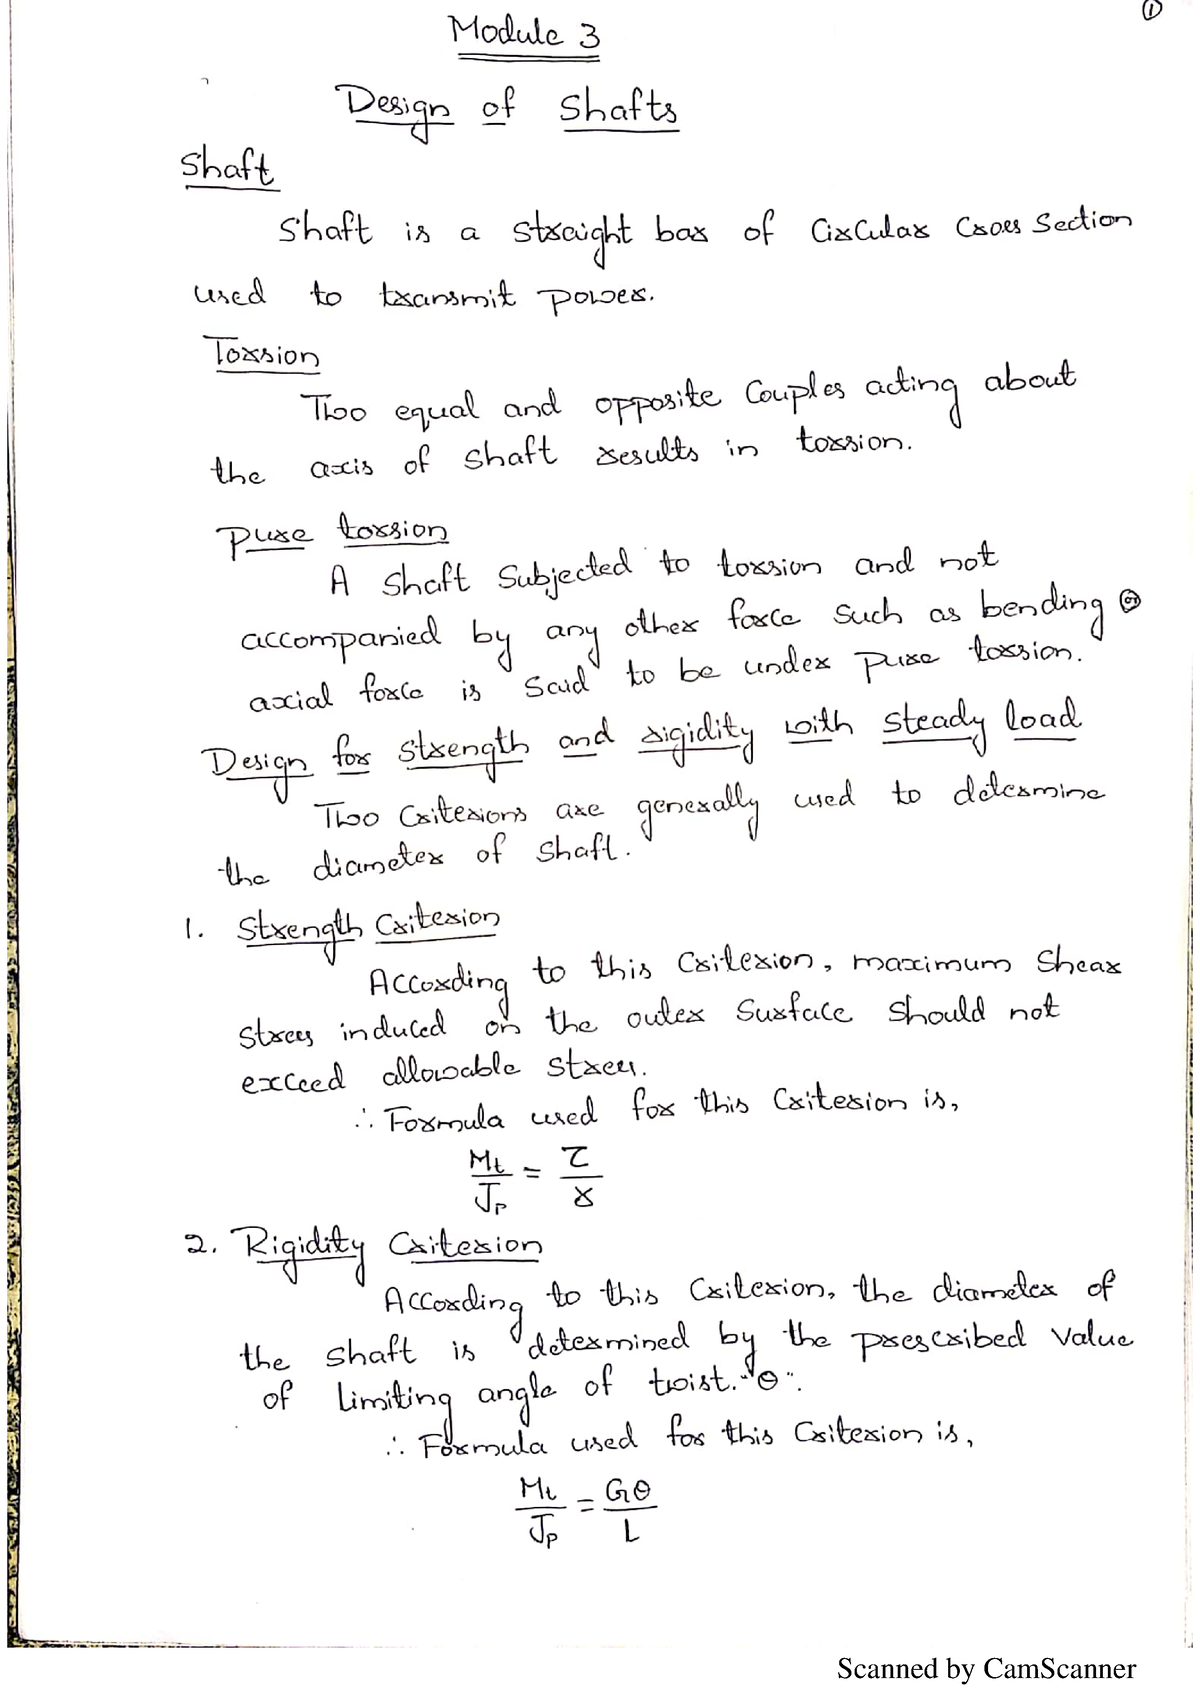 ①
Module 3
Design of Shafts
Shaft
Shaft is a straight bar of Circular Cross Section
used to transmit power.
Torsion
Two equal and opposite Couples acting about
the axis of shaft results in torsion.
Pure torsion
A Shaft Subjected to torsion and not
accompanied by any other force Such as bending or
axial force is Said to be under pure torsion.
Design for strength and rigidity with steady load
Two Criterions are generally used to determine
the diameter of Shaft.
1. Strength Criterion
According to this Criterion, maximum Shear
Stress induced on the outer Surface Should not
exceed allowable stress.
∴ Formula used for this Criterion is,
Mt/Jp = τ/r
2. Rigidity Criterion
According to this Criterion, the diameter of
the shaft is determined by the prescribed value
of limiting angle of twist. "θ".
∴ Formula used for this Criterion is,
Mt/Jp = Gθ/L
Scanned by CamScanner